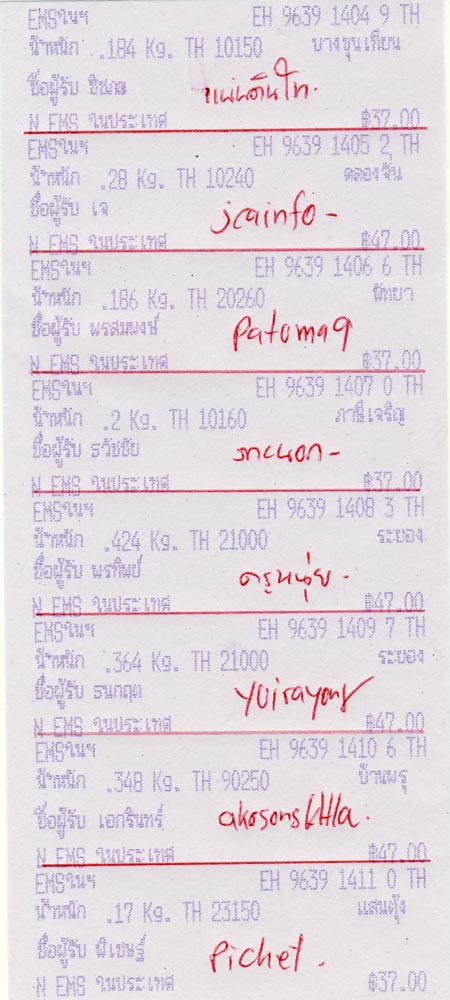 EMSในฯ EH 9639 1404 9 TH
น้ำหนัก .184 Kg. TH 10150 บางขุนเทียน
ชื่อผู้รับ
แผ่นดินไท.
N EMS ในประเทศ ฿37.00
EMSในฯ EH 9639 1405 2 TH
น้ำหนัก .28 Kg. TH 10240 คลองจั่น
ชื่อผู้รับ เจ
jcainfo -
N EMS ในประเทศ ฿47.00
EMSในฯ EH 9639 1406 6 TH
น้ำหนัก .186 Kg. TH 20260 พัทยา
ชื่อผู้รับ พรสมพงษ์
Patoma9
N EMS ในประเทศ ฿37.00
EMSในฯ EH 9639 1407 0 TH
น้ำหนัก .2 Kg. TH 10160 ภาษีเจริญ
ชื่อผู้รับ ธวัชชัย
N EMS ในประเทศ ฿37.00
EMSในฯ EH 9639 1408 3 TH
น้ำหนัก .424 Kg. TH 21000 ระยอง
ชื่อผู้รับ พรทิพย์
ครูหนุ่ย -
N EMS ในประเทศ ฿47.00
EMSในฯ EH 9639 1409 7 TH
น้ำหนัก .364 Kg. TH 21000 ระยอง
ชื่อผู้รับ ธนกฤต
yuirayong
N EMS ในประเทศ ฿47.00
EMSในฯ EH 9639 1410 6 TH
น้ำหนัก .348 Kg. TH 90250 บ้านพรุ
ชื่อผู้รับ เอกรินทร์
N EMS ในประเทศ ฿47.00
EMSในฯ EH 9639 1411 0 TH
น้ำหนัก .17 Kg. TH 23150 แสนตุ้ง
ชื่อผู้รับ พิเชษฐ์
Pichet .
N EMS ในประเทศ ฿37.00